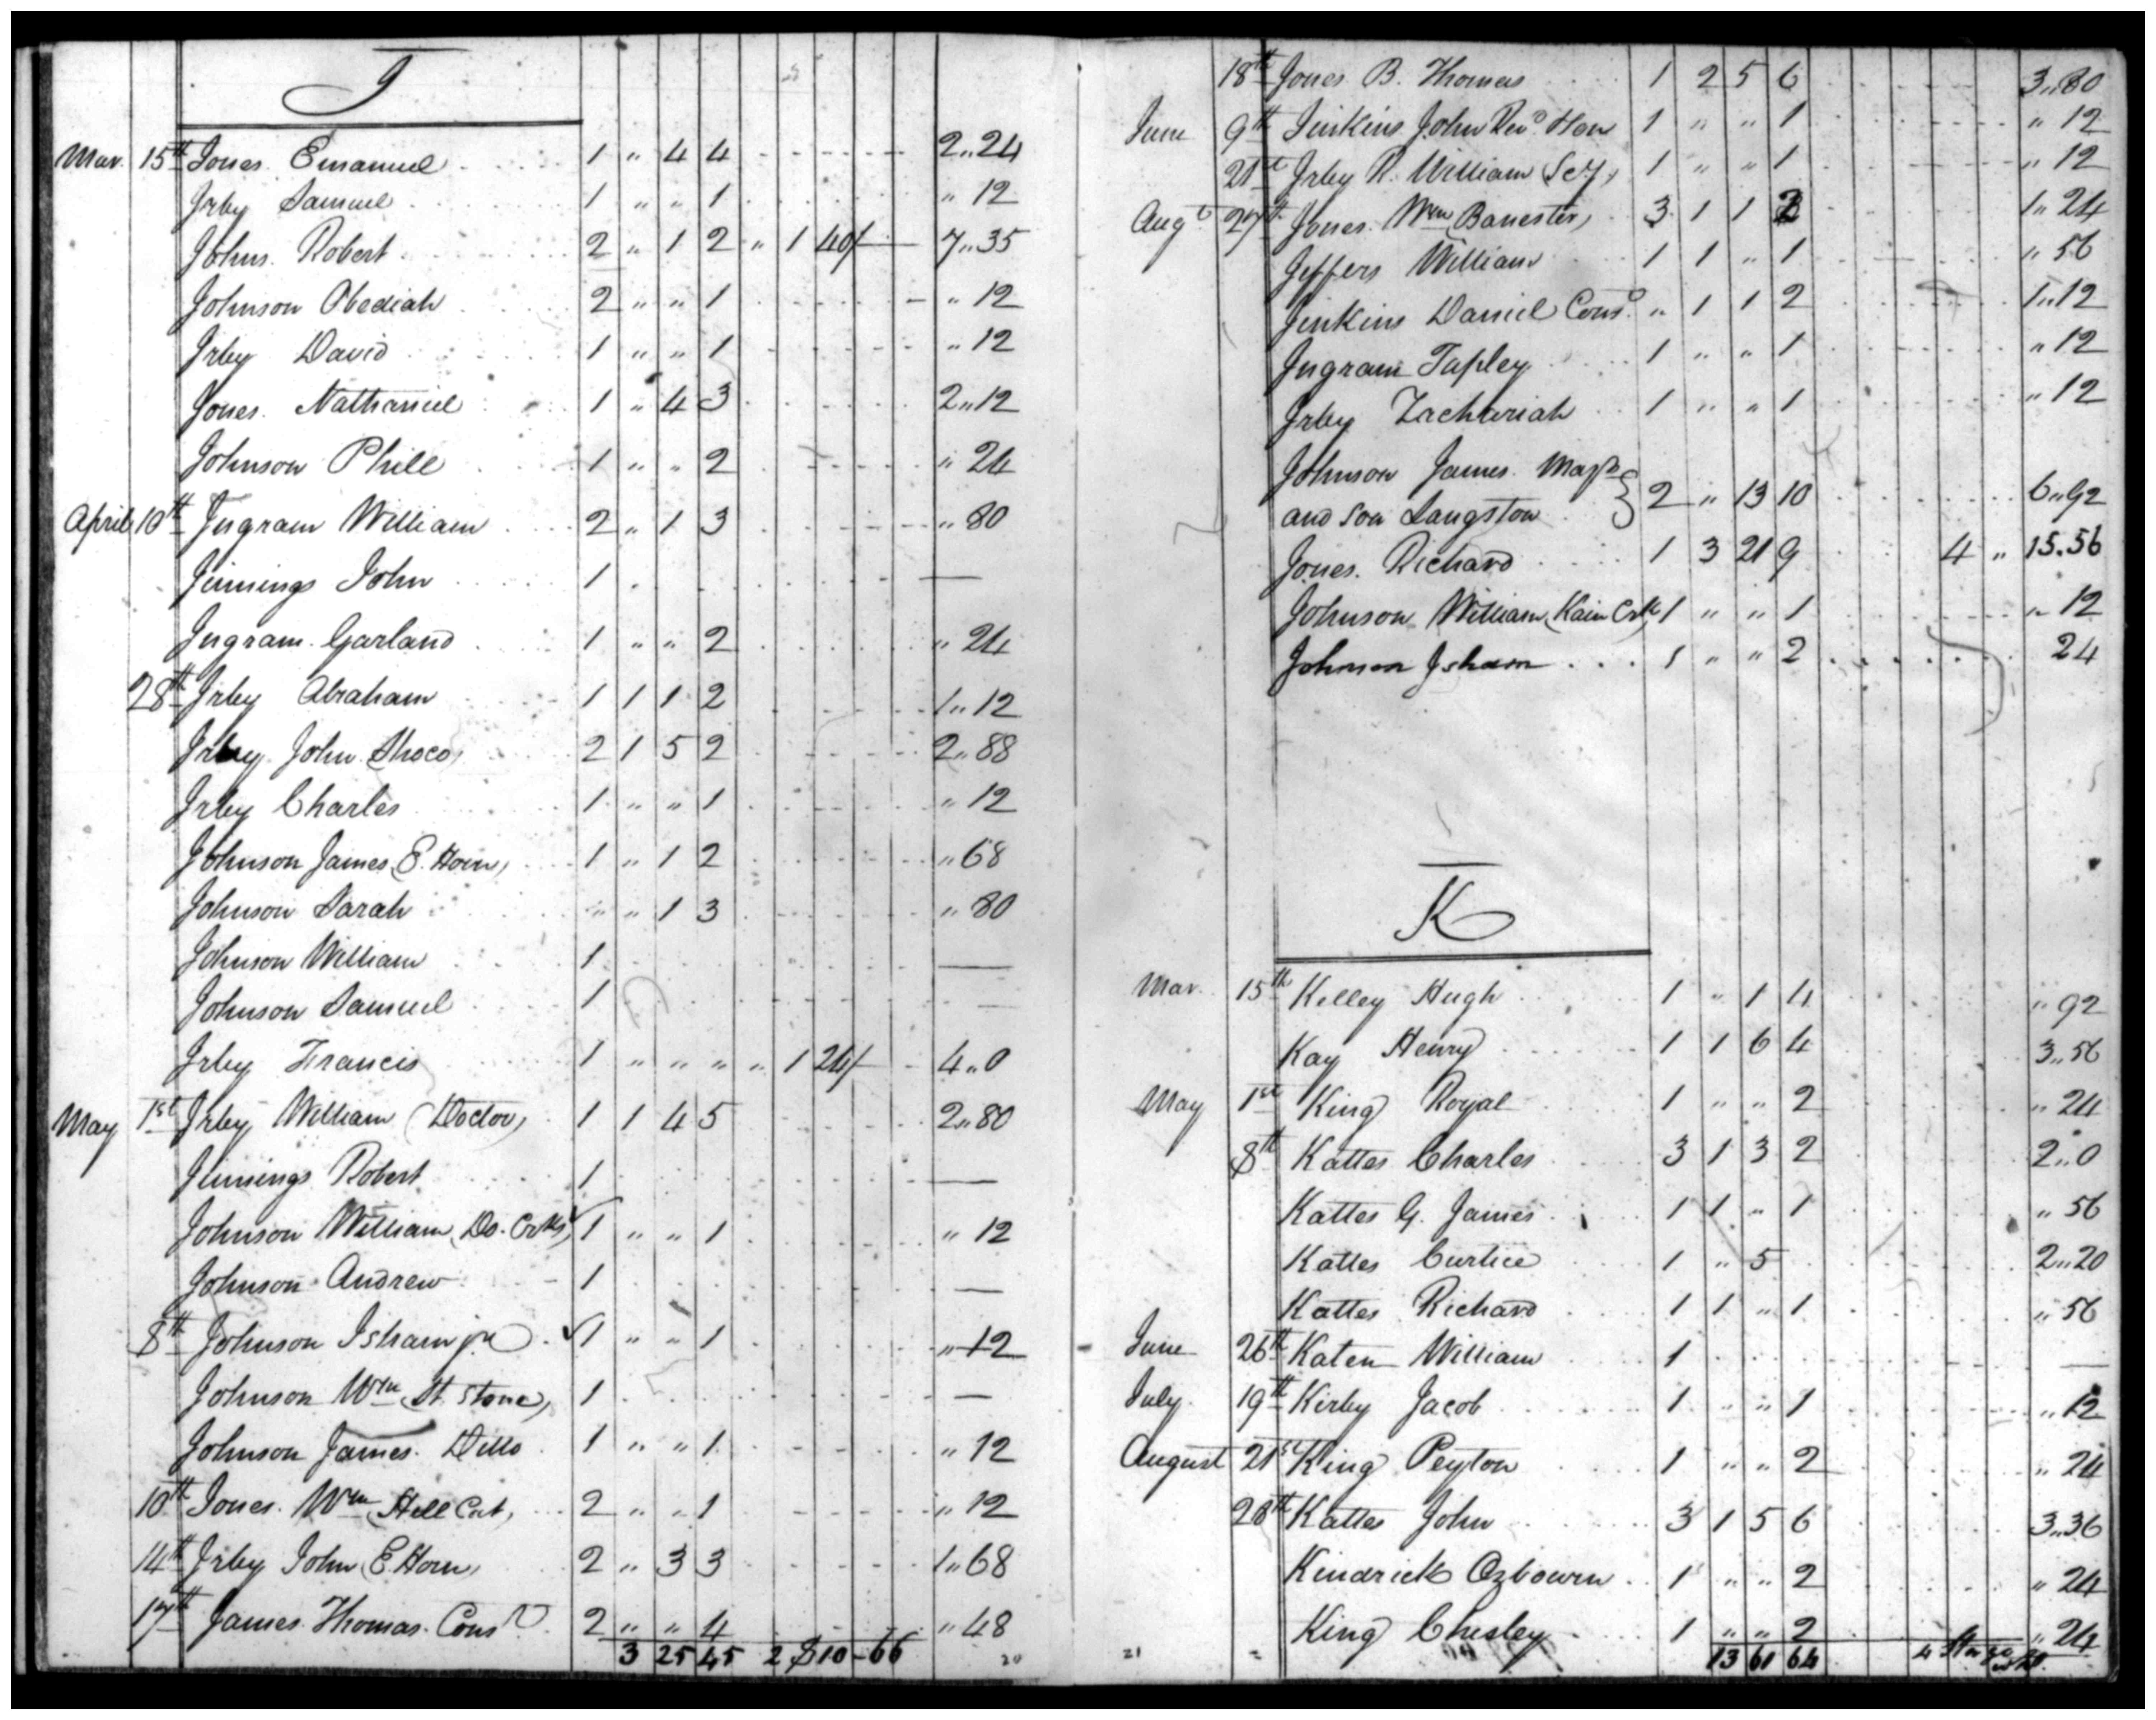 J
Mar. 15th Jones. Emanuel 1 " 4 4 2..24
Irby Samuel 1 " " 1 " 12
Johns. Robert 2 " 1 2 " 1 40/ 7..35
Johnson Obediah 2 " " 1 " 12
Irby David 1 " " 1 " 12
Jones. Nathaniel 1 " 4 3 2..12
Johnson Phill 1 " " 2 " 24
April 10th Ingram William 2 " 1 3 " 80
Jinnings John 1 —
Ingram. Garland 1 " " 2 " 24
28th Irby Abraham 1 1 1 2 1..12
Irby John Shoco) 2 1 5 2 2..88
Irby Charles 1 " " 1 " 12
Johnson James (E. Horn) 1 " 1 2 " 68
Johnson Sarah " " 1 3 " 80
Johnson William 1 —
Johnson Samuel 1 —
Irby Francis 1 " " " " 1 24/ 4..0
May 1st Irby William (Doctor) 1 1 4 5 2..80
Jinnings Robert 1 —
Johnson William (Do. Crk) 1 " " 1 " 12
Johnson Andrew 1 —
8th Johnson Isham jr 1 " " 1 " 12
Johnson Wm (St. Stone) 1 —
Johnson James. Ditto 1 " " 1 " 12
10th Jones. Wm (Hell Cat) 2 " " 1 " 12
14th Irby John (E Horn) 2 " 3 3 1..68
17th James. Thomas. Cons. 2 " " 4 " 48
3 25 45 2 $10-66
20
18th Jones. B. Thomas 1 2 5 6 3..80
June 9th Jinkins John Revd. Hon 1 " " 1 " 12
21st Irby R. William 1 " " 1 " 12
Augt. 27th Jones. Wm (Banester) 3 1 1 2 1..24
Jeffers William 1 1 " 1 " 56
Jinkins Daniel Cons. " 1 1 2 1..12
Ingram Tapley 1 " " 1 " 12
Irby Zachariah 1 " " 1 " 12
Johnson James. Majr
and Son Langston } 2 " 13 10 6..92
Jones. Richard 1 3 21 9 4 " 15.56
Johnson William (Kain Crk) 1 " " 1 " 12
Johnson Isham 1 " " 2 24
K
Mar. 15th Kelley Hugh 1 " 1 4 " 92
Kay Henry 1 1 6 4 3..56
May 1st King Royal 1 " " 2 " 24
8th Kattes Charles 3 1 3 2 2..0
Kattes G. James 1 1 " 1 " 56
Kattes Curtice 1 " 5 2..20
Kattes Richard 1 1 " 1 " 56
June 26th Katen William 1 —
July 19th Kirby Jacob 1 " " 1 " 12
August 21st King Peyton 1 " " 2 " 24
28th Kattes John 3 1 5 6 3..36
Kindrick Ozbourn 1 " " 2 " 24
King Chesley 1 " " 2 " 24
21 13 61 64 4